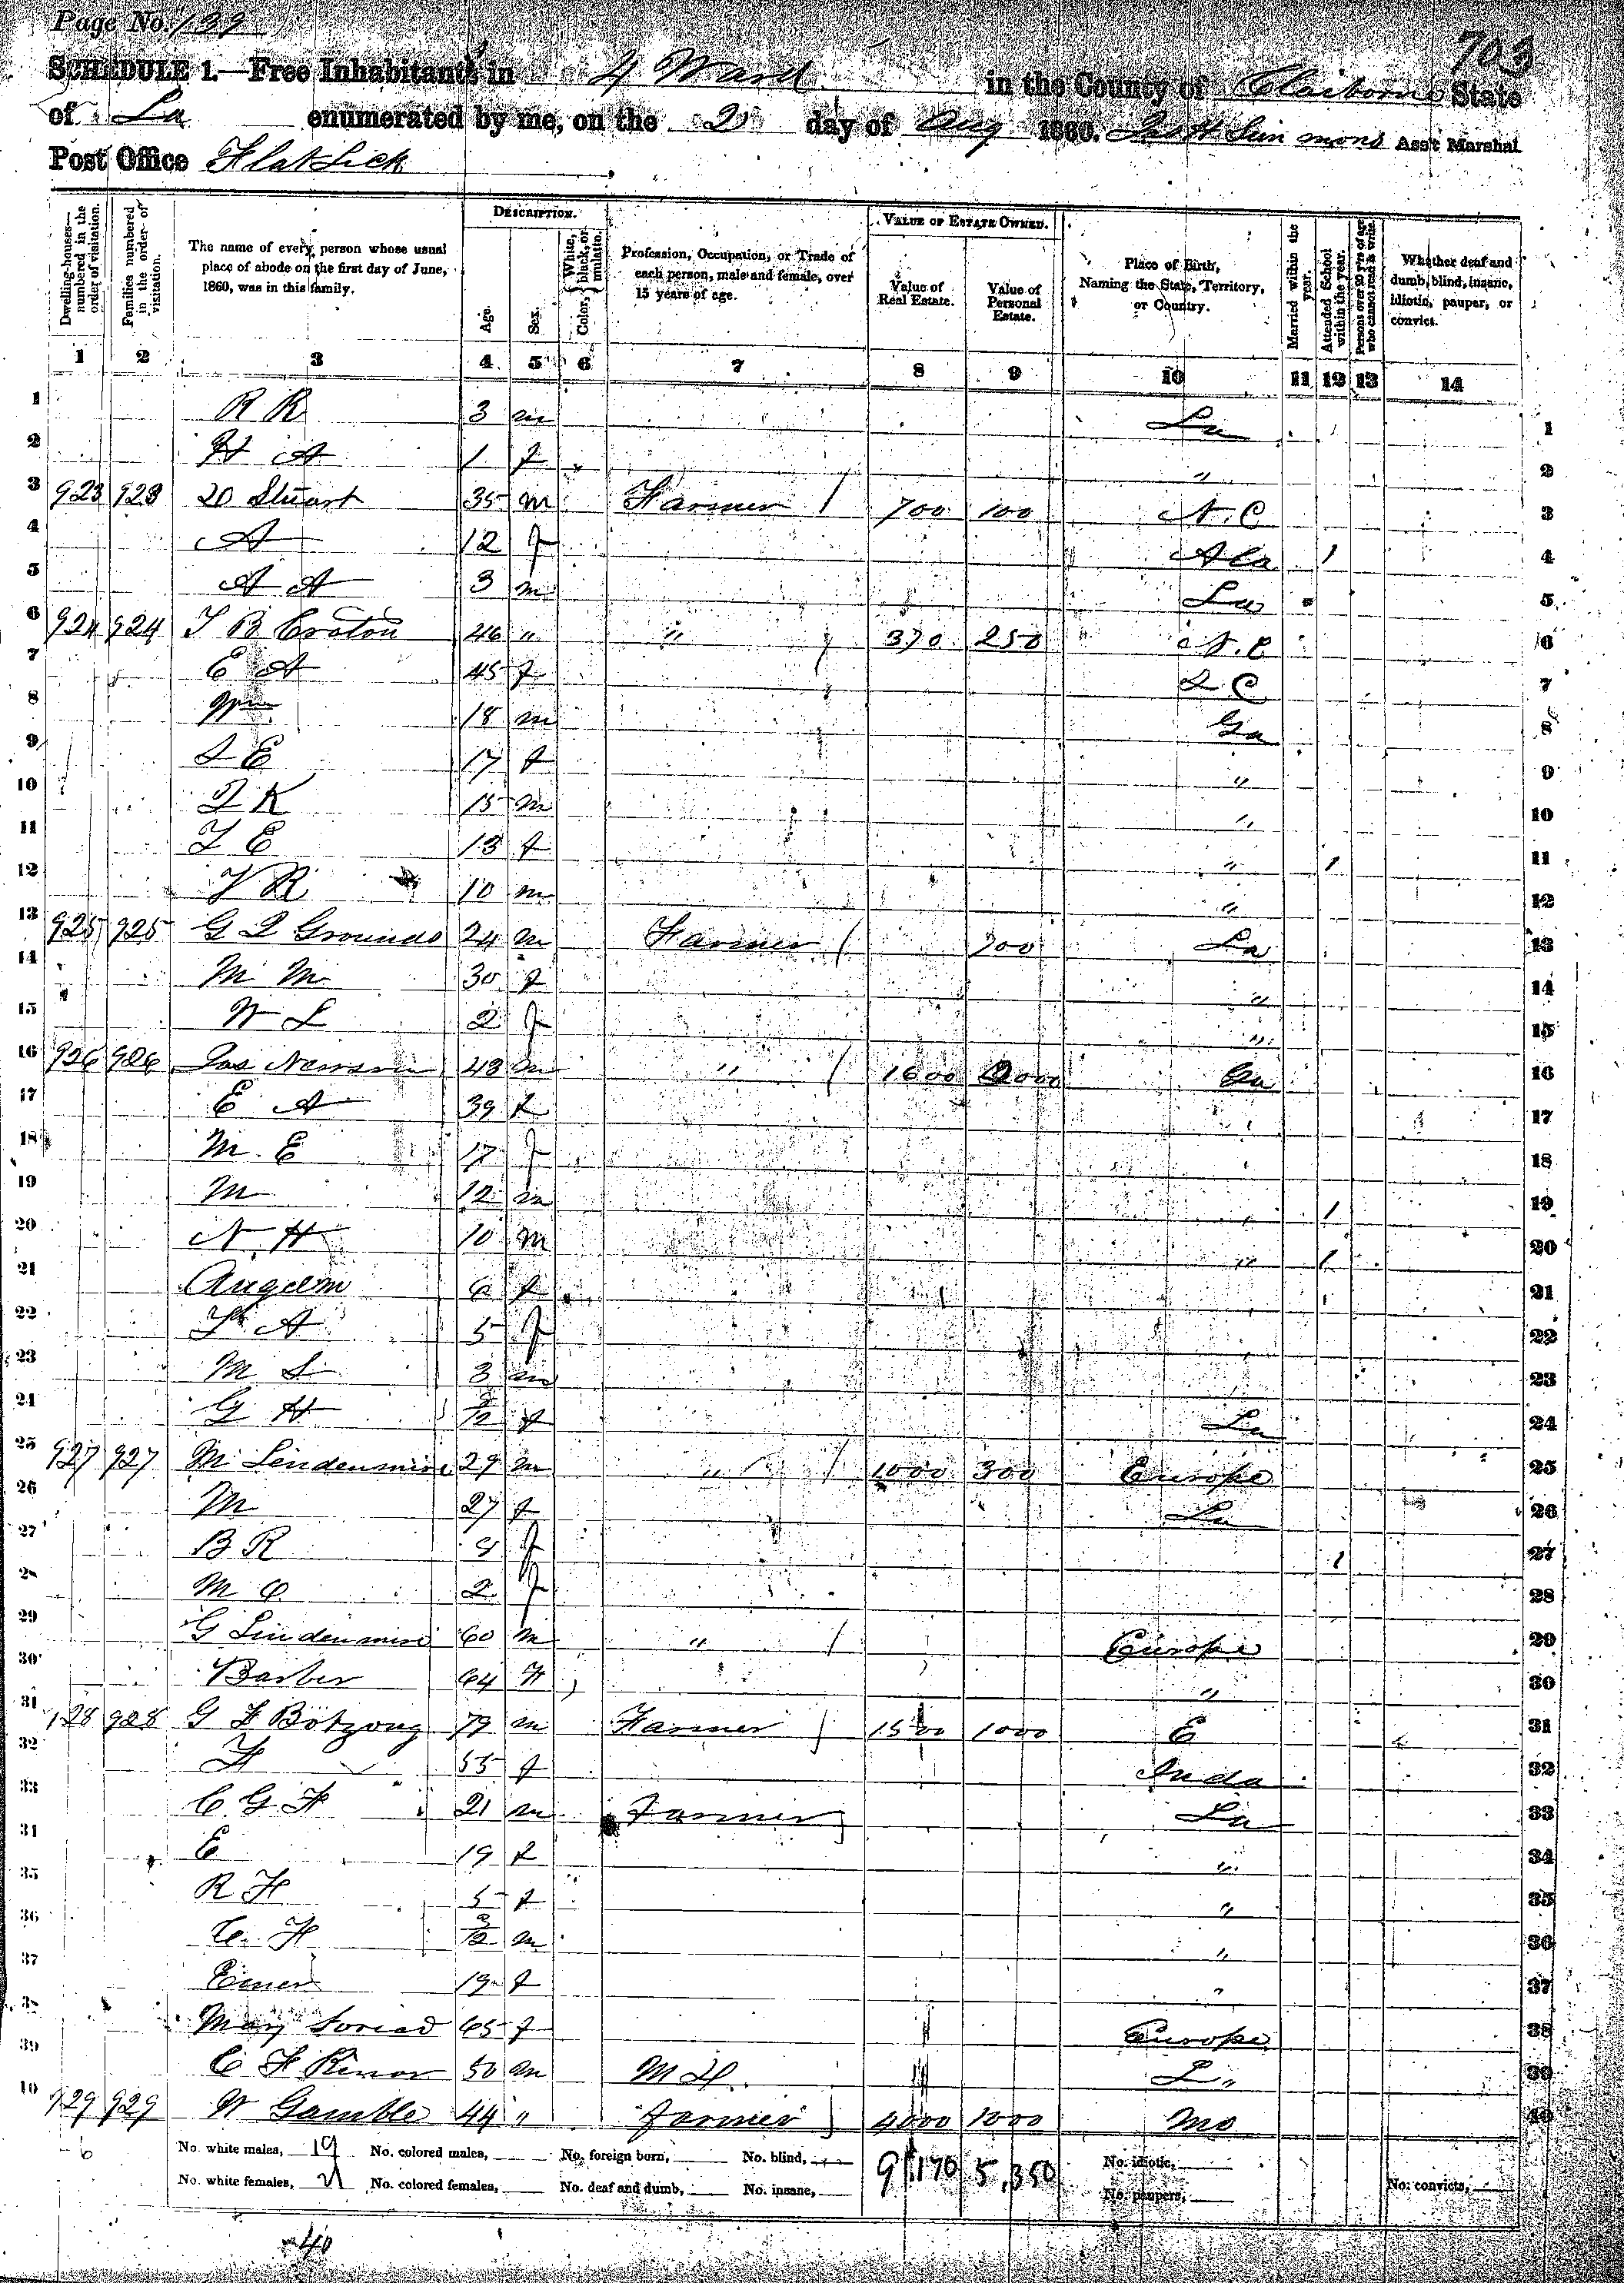 Page No. 139
703
SCHEDULE 1.—Free Inhabitants in 4 Ward in the County of Claiborne State
of La enumerated by me, on the 2 day of Aug 1860. Jas H Simmons Ass't Marshal
Post Office Flat Lick
Dwelling-houses—numbered in the order of visitation.
Families numbered in the order of visitation.
The name of every person whose usual place of abode on the first day of June, 1860, was in this family.
DESCRIPTION.
Age.
Sex.
Color, White, black, or mulatto.
Profession, Occupation, or Trade of each person, male and female, over 15 years of age.
VALUE OF ESTATE OWNED.
Value of Real Estate.
Value of Personal Estate.
Place of Birth, Naming the State, Territory, or Country.
Married within the year.
Attended School within the year.
Persons over 20 y'rs of age who cannot read & write.
Whether deaf and dumb, blind, insane, idiotic, pauper, or convict.
1 2 3 4 5 6 7 8 9 10 11 12 13 14
1 R R 3 m La 1
2 H A 1 f " 2
3 923 923 Stuart 35 m Farmer / 700 100 N.C 3
4 A 12 f Ala 1 4
5 A A 3 m La 5
6 924 924 J B Croton 46 " " / 370 250 N.C 6
7 E A 45 f S C 7
8 Wm 18 m Ga 8
9 S E 17 f " 9
10 J K 15 m " 10
11 J E 13 f " 1 11
12 J R 10 m " 12
13 925 925 G L Grounds 24 m Farmer / 700 La 13
14 M M 30 f " 14
15 W L 2 f " 15
16 926 926 Jas Newsom 48 m " / 1600 2000 Ga 16
17 E A 39 f " 17
18 M. E 17 f " 18
19 M 12 m " 1 19
20 N. H 10 m " 1 20
21 6 f 21
22 A 5 f 22
23 M S 3 m 23
24 G H 3/12 f La 24
25 927 927 M Lindenmire 29 m " / 1000 300 Europe 25
26 M 27 f La 26
27 B R 9 f 1 27
28 M C 2 f 28
29 G Lindenmire 60 m " / Europe 29
30 Barber 64 F " 30
31 928 928 G F Botzong 79 m Farmer / 1500 1000 E 31
32 F 55 f Inda 32
33 C. G F 21 m Farmer La 33
34 E 19 f " 34
35 R F 5 f " 35
36 C. F 3/12 m " 36
37 19 f " 37
38 Mary 65 f Europe 38
39 C F 50 m M D. L " 39
40 929 929 W Gamble 44 " Farmer 4000 1000 Mo 40
6 No. white males, 19 No. colored males, No. foreign born, No. blind, 9,170 5,350 No. idiotic,
No. white females, 21 No. colored females, No. deaf and dumb, No. insane, No. paupers, No. convicts,
40